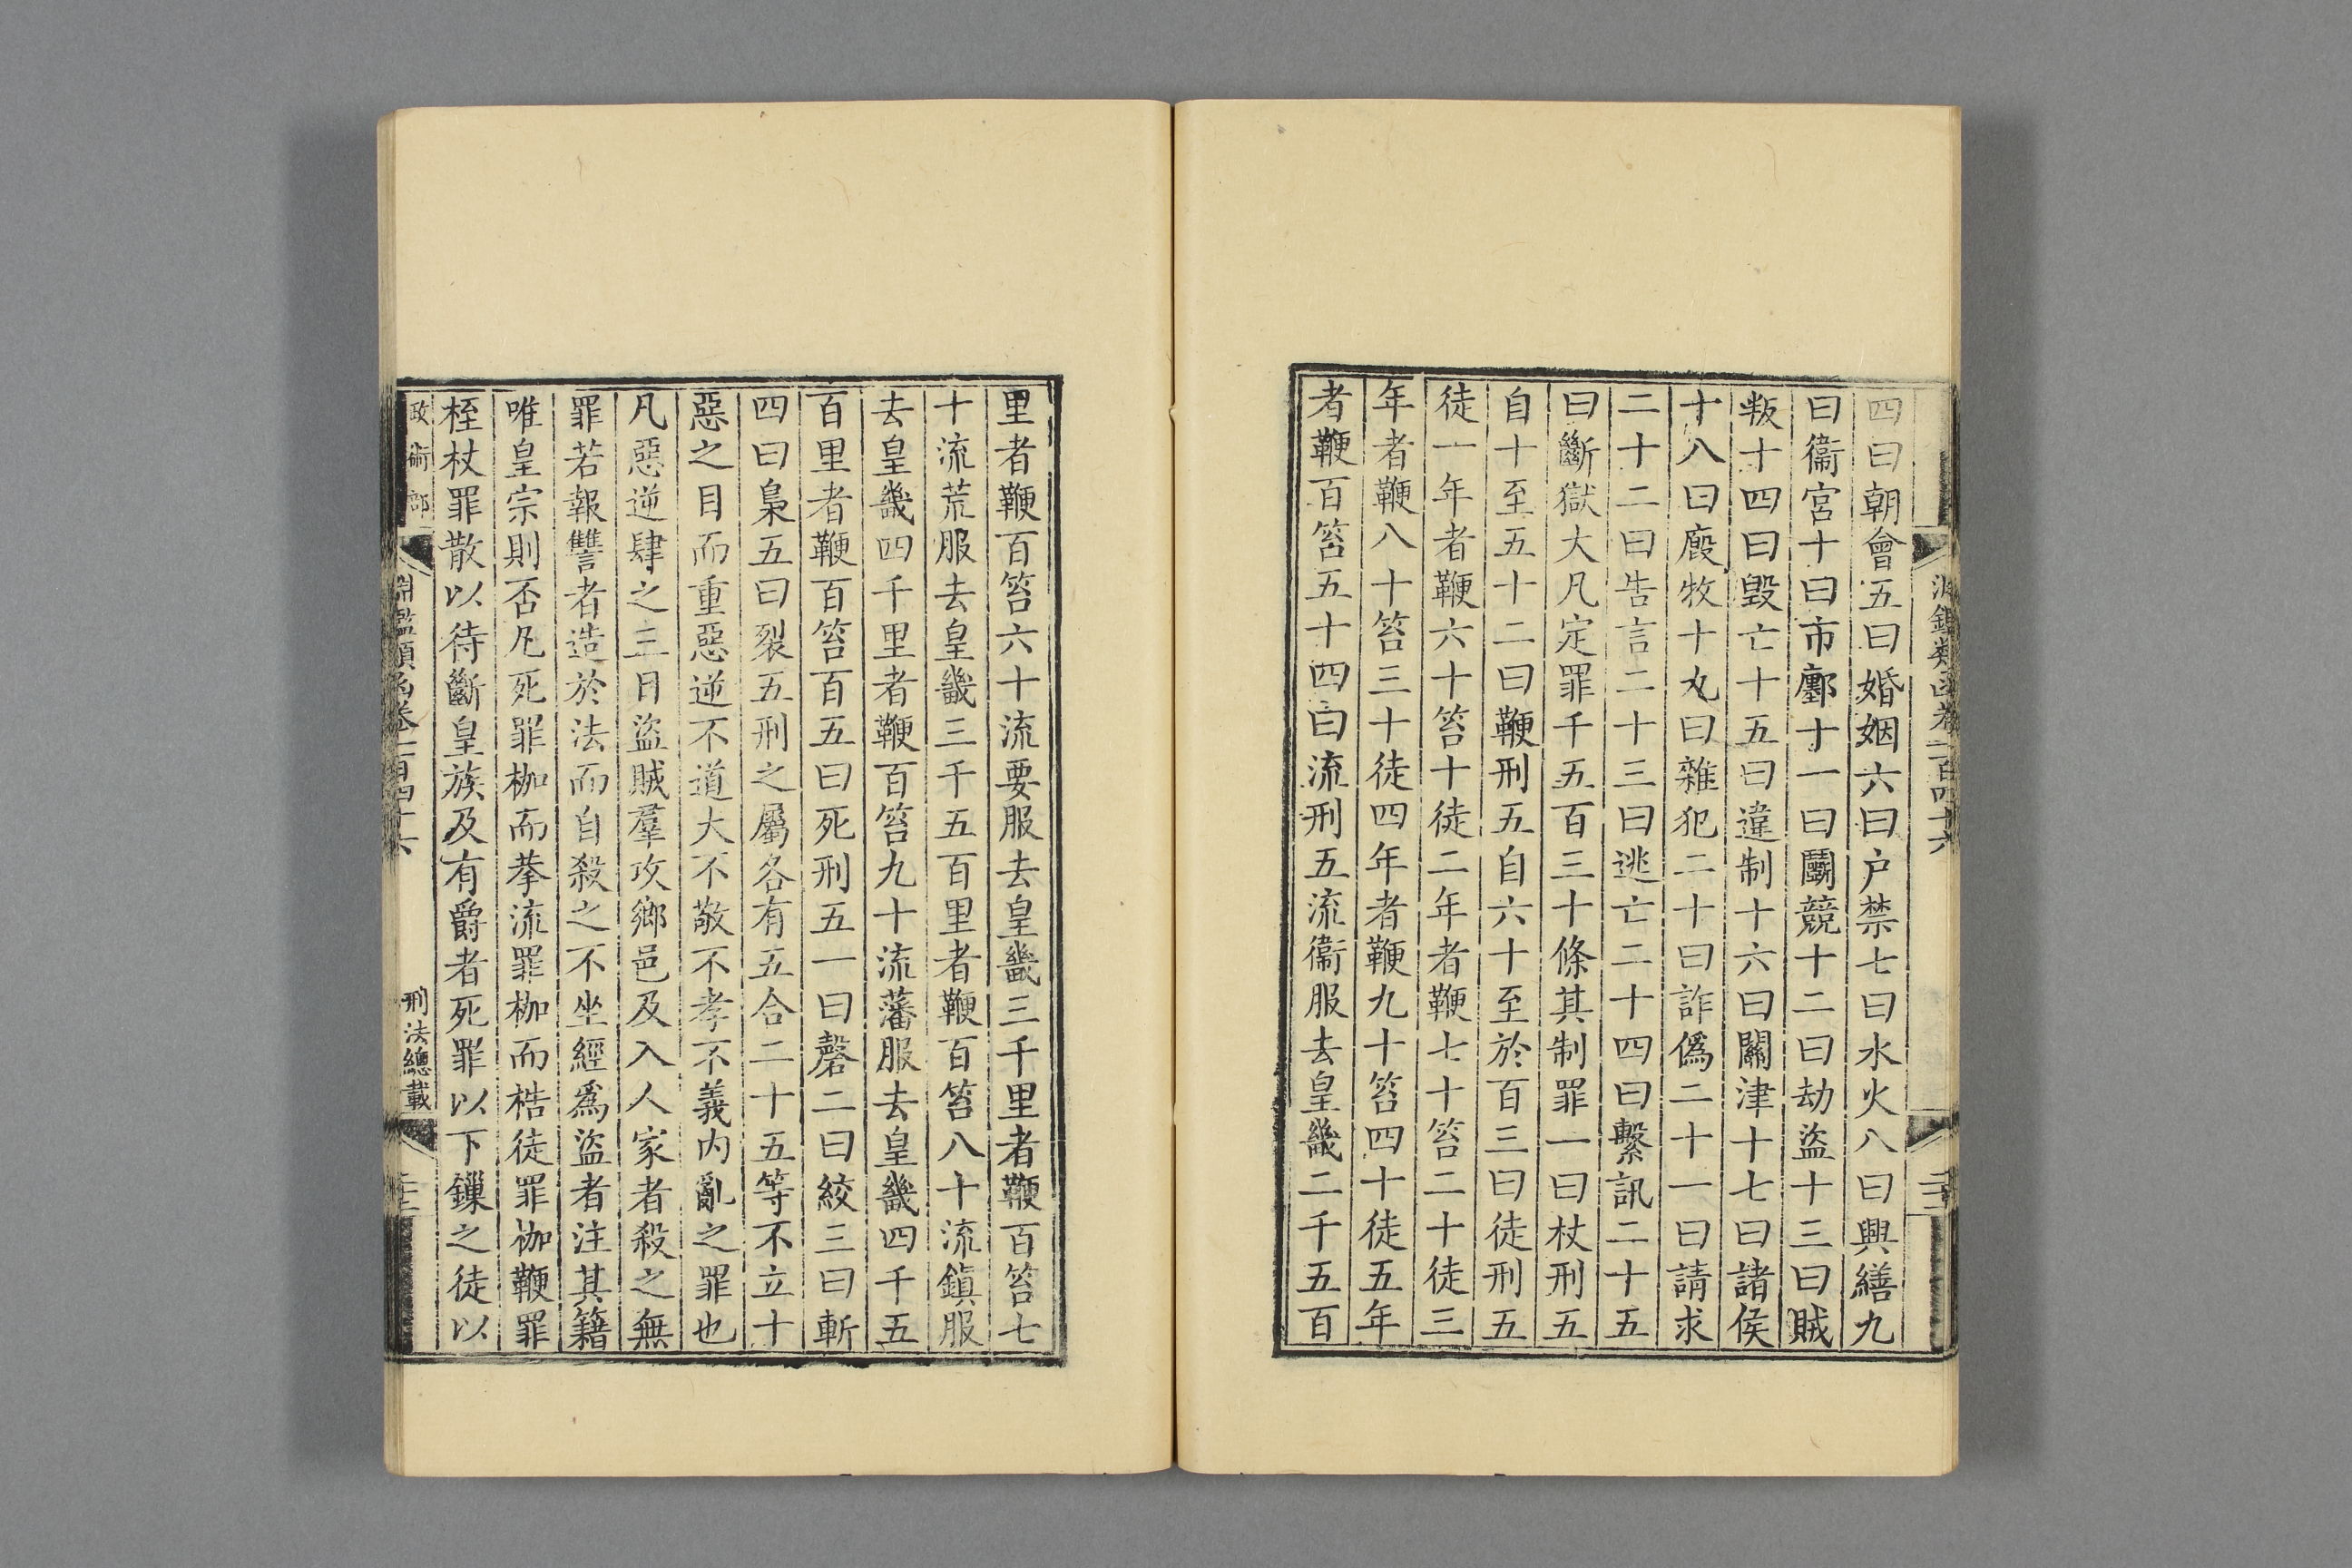 四曰朝會五曰婚姻六曰户禁七曰水火八曰興繕九
曰衞宮十曰市鄽十一曰鬬競十二曰劫盜十三曰賊
叛十四曰毀亡十五曰違制十六曰關津十七曰諸侯
十八曰廄牧十九曰雜犯二十曰詐僞二十一曰請求
二十二曰告言二十三曰逃亡二十四曰繫訊二十五
曰斷獄大凡定罪千五百三十條其制罪一曰杖刑五
自十至五十二曰鞭刑五自六十至於百三曰徒刑五
徒一年者鞭六十笞十徒二年者鞭七十笞二十徒三
年者鞭八十笞三十徒四年者鞭九十笞四十徒五年
者鞭百笞五十四曰流刑五流衞服去皇畿二千五百
里者鞭百笞六十流要服去皇畿三千里者鞭百笞七
十流荒服去皇畿三千五百里者鞭百笞八十流鎮服
去皇畿四千里者鞭百笞九十流藩服去皇畿四千五
百里者鞭百笞百五曰死刑五一曰磬二曰絞三曰斬
四曰梟五曰裂五刑之屬各有五合二十五等不立十
惡之目而重惡逆不道大不敬不孝不義内亂之罪也
凡惡逆肆之三日盜賊羣攻鄉邑及入人家者殺之無
罪若報讐者造於法而自殺之不坐經爲盜者注其籍
唯皇宗則否凡死罪枷而拲流罪枷而梏徒罪枷鞭罪
桎杖罪散以待斷皇族及有爵者死罪以下鏁之徒以
政術部
淵鑑類函卷一百四十六
刑法總載